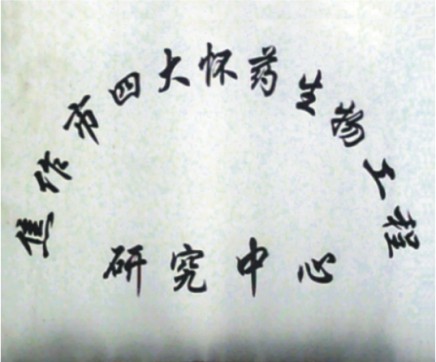 焦作市四大怀药生物工程
研究中心